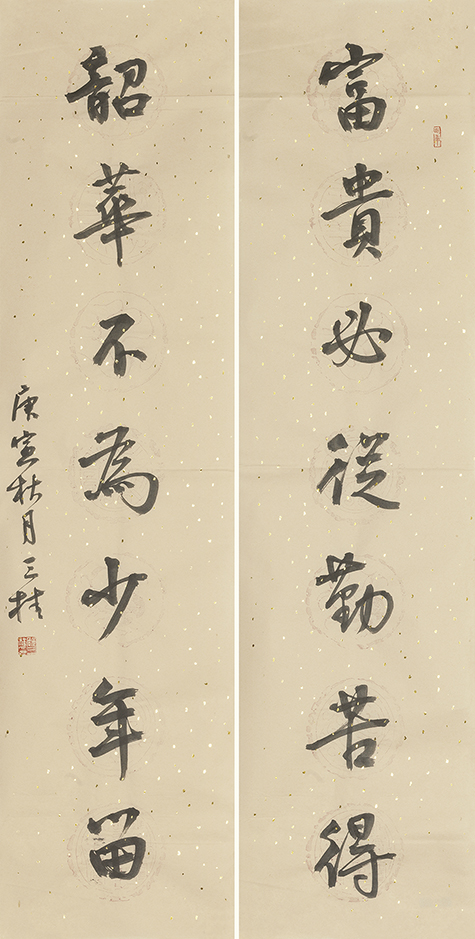 富貴必從勤苦得
韶華不為少年留
庚寅秋月三桂